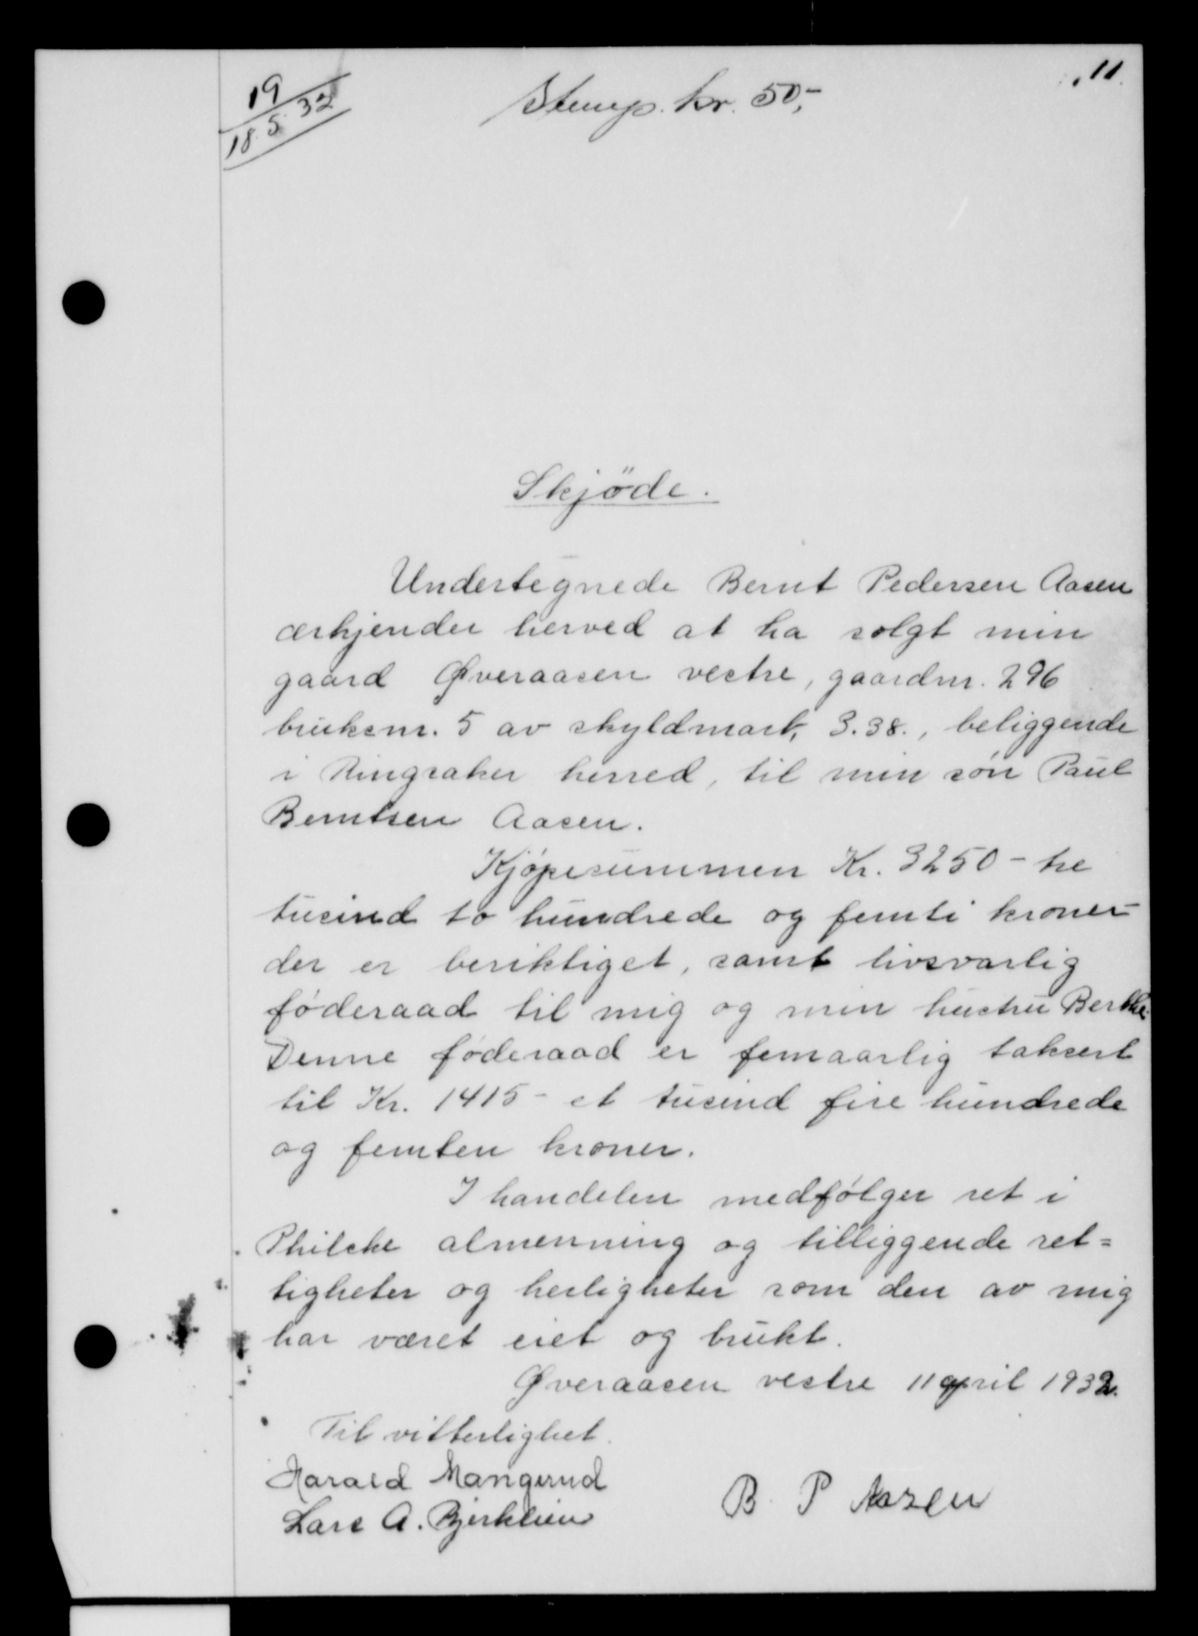 19
18.5.32
Stemp. kr. 50,-
11
Skjöde.
Undertegnede Bernt Pedersen Aasen
ærkjender herved at ha solgt min
gaard Øveraasen vestre, gaardnr. 296
bruksnr. 5 av skyldmark, 3.38., beliggende
i Ringsaker herred, til min søn Paul
Berntsen Aasen.
Kjøpesummen Kr. 3250 - tre
tusind to hundrede og femti kroner-
der er beriktiget, samt livsvarlig
føderaad til mig og min hustru Berthe.
Denne føderaad er femaarlig taksert
til Kr. 1415 - et tusind fire hundrede
og femten kroner.
I handelen medfølger ret i
Philske almenning og tilliggende ret=
tigheter og herligheter som den av mig
har været eiet og brukt.
Øveraasen vestre 11 april 1932.
Til vitterlighet.
Harald Mangerud
Lars A. Bjerklien
B. P Aasen